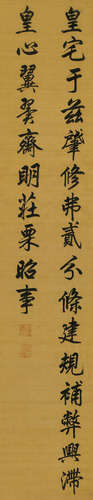 皇宅于兹肇修弗貳分條建規補弊興滯
皇心翼翼齋明莊栗昭事